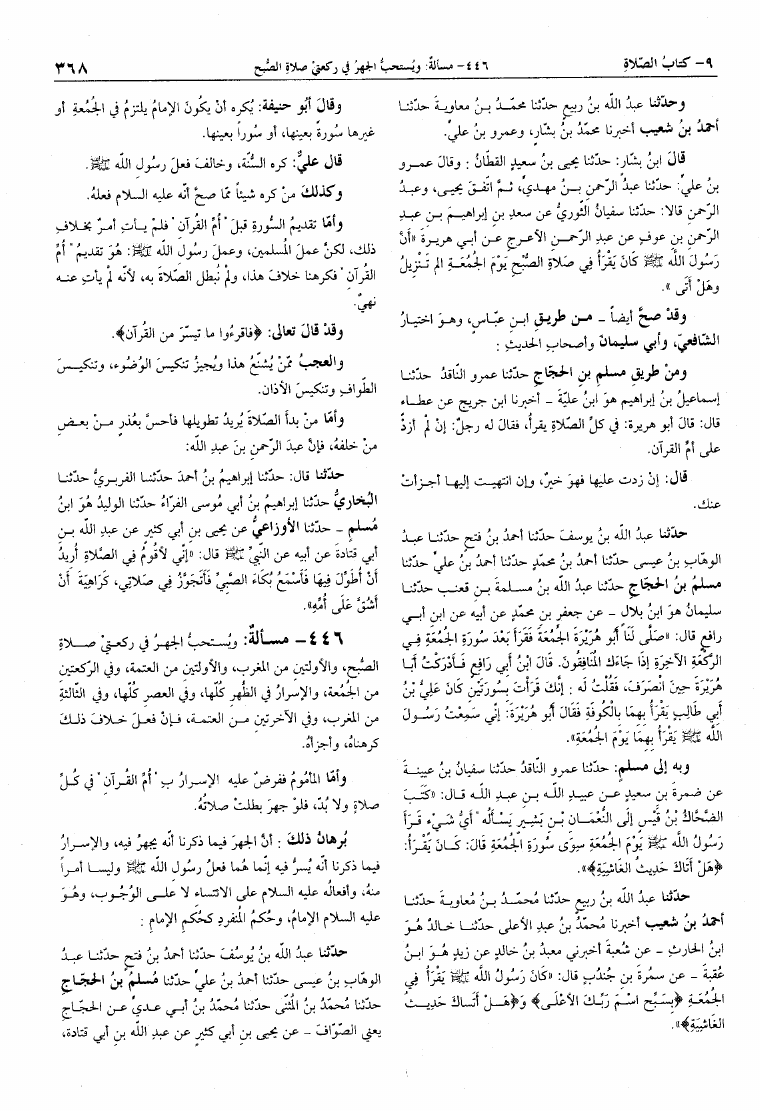 ٩- كتابُ الصّلاةِ
٤٤٦- مسألةٌ: ويُستحبُّ الجهرُ في ركعتيْ صلاةِ الصُّبح
٣٦٨
وحدّثنا عبدُ الله بنُ ربيع حدّثنا محمّدُ بنُ معاويةَ حدّثنا
أحمدُ بنُ شعيب أخبرنا محمّدُ بنُ بشّارٍ، وعمرو بنُ عليٍّ.
قالَ ابنُ بشّار: حدّثنا يحيى بنُ سعيدٍ القطّانُ: وقالَ عمرو
بنُ عليّ: حدّثنا عبدُ الرّحمنِ بنُ مهديٍّ، ثمَّ اتّفقَ يحيى، وعبدُ
الرّحمنِ قالا: حدّثنا سفيانُ الثّوريُّ عن سعدِ بنِ إبراهيمَ بنِ عبدِ
الرّحمنِ بنِ عوفٍ عن عبدِ الرّحمنِ الأعرجِ عن أبي هريرةَ «أَنَّ
رَسُولَ اللهِ ﷺ كَانَ يَقْرَأُ فِي صَلَاةِ الصُّبْحِ يَوْمَ الجُمُعَةِ الم تَنْزِيلُ
وَهَلْ أَتَى».
وقدْ صحَّ أيضاً - مـن طريقِ ابنِ عبّاسٍ، وهوَ اختيارُ
الشّافعيِّ، وأبي سليمانَ وأصحابِ الحديثِ:
ومنْ طريقِ مسلمِ بنِ الحجّاجِ حدّثنا عمرو النّاقدُ حدّثنا
إسماعيلُ بنُ إبراهيم هوَ ابنُ عليّةَ - أخبرنا ابن جريج عن عطاء
قال: قالَ أبو هريرة: في كلِّ الصّلاةِ يقرأُ، فقالَ له رجلٌ: إنْ لمْ أزدْ
على أمِّ القرآنِ.
قالَ: إنْ زدت عليها فهوَ خيرٌ، وإن انتهيت إليها أجزأتْ
عنك.
حدّثنا عبدُ الله بنُ يوسفَ حدّثنا أحمدُ بنُ فتحٍ حدّثنا عبدُ
الوهّابِ بنُ عيسى حدّثنا أحمدُ بنُ محمّدٍ حدّثنا أحمدُ بنُ عليٍّ حدّثنا
مسلمُ بنُ الحجّاجِ حدّثنا عبدُ الله بنُ مسلمةَ بنِ قعنب حدّثنا
سليمانُ هوَ ابنُ بلالٍ - عن جعفرِ بنِ محمّدٍ عن أبيه عن ابنِ أبي
رافعٍ قال: «صَلَّى لَنَا أَبُو هُرَيْرَةَ الجُمُعَةَ فَقَرَأَ بَعْدَ سُورَةِ الجُمُعَةِ فِي
الرَّكْعَةِ الآخِرَةِ إذَا جَاءَك المُنَافِقُونَ. قَالَ ابْنُ أَبِي رَافِعٍ فَأَدْرَكْتُ أَبَا
هُرَيْرَةَ حِينَ انْصَرَفَ، فَقُلْتُ لَهُ: إنَّك قَرَأْتَ بِسُورَتَيْنِ كَانَ عَلِيُّ بْنُ
أَبِي طَالِبٍ يَقْرَأُ بِهِمَا بِالْكُوفَةِ فَقَالَ أَبُو هُرَيْرَةَ: إنِّي سَمِعْتُ رَسُولَ
اللهِ ﷺ يَقْرَأُ بِهِمَا يَوْمَ الجُمُعَةِ».
وبه إلى مسلمٍ: حدّثنا عمرو النّاقدُ حدّثنا سفيانُ بنُ عيينةَ
عن ضمرةَ بنِ سعيدٍ عن عبيدِ اللـه بنِ عبدِ اللـه قال: «كَتَبَ
الضَّحَّاكُ بْنُ قَيْسٍ إلَى النُّعْمَانِ بْنِ بَشِيرٍ يَسْأَلُهُ "أَيُّ شَيْءٍ قَرَأَ
رَسُولُ اللهِ ﷺ يَوْمَ الجُمُعَةِ سِوَى سُورَةِ الجُمُعَةِ قَالَ: كَانَ يَقْرَأُ:
﴿هَلْ أَتَاكَ حَدِيثُ الغَاشِيَةِ﴾».
حدّثنا عبدُ الله بنُ ربيعٍ حدّثنا مُحمّدُ بنُ مُعاويةَ حدّثنا
أحمدُ بنُ شعيب أخبرنا مُحمّدُ بنُ عبدِ الأعلى حدّثنا خالدٌ هُوَ
ابنُ الحارثِ - عن شُعبةَ أخبرني معبدُ بنُ خالدٍ عن زيدٍ هُوَ ابنُ
عُقبةَ - عن سمُرةَ بنِ جُندُبٍ قال: «كَانَ رَسُولُ اللهِ ﷺ يَقْرَأُ فِي
الجُمُعَةِ ﴿بِسَبِّحِ اسْمَ رَبِّكَ الأَعْلَى﴾ وَ﴿هَلْ أَتَاكَ حَدِيثُ
الغَاشِيَةِ﴾».
وقالَ أبُو حنيفةَ: يُكره أنْ يكُونَ الإمامُ يلتزمُ في الجُمُعةِ أو
غيرها سُورةً بعينها، أو سُوراً بعينها.
قال عليٌّ: كره السُّنّة، وخالفَ فعلَ رسُولِ الله ﷺ.
وكذلكَ منْ كره شيئاً ممّا صحَّ أنّه عليه السلام فعلهُ.
وأمّا تقديمُ السُّورةِ قبلَ "أُمِّ القُرآنِ" فلمْ يـأتِ أمرٌ بخلافِ
ذلك، لكنَّ عملَ المُسلمين، وعملَ رسُول الله ﷺ: هُوَ تقديمُ "أُمِّ
القُرآنِ" فكرهنا خلافَ هذا، ولمْ نُبطل الصّلاةَ به، لأنّه لمْ يأتِ عنه
نهيٌ.
وقدْ قالَ تعالى: ﴿فاقرءُوا ما تيسّرَ من القُرآنِ﴾.
والعجبُ ممّنْ يُشنّعُ هذا ويُجيزُ تنكيسَ الوُضُوء، وتنكيسَ
الطّوافِ وتنكيسَ الأذان.
وأمّا منْ بدأَ الصّلاةَ يُريدُ تطويلها فأحسَّ بعُذرٍ منْ بعضِ
منْ خلفهُ، فإنَّ عبدَ الرّحمنِ بنَ عبدِ الله:
حدّثنا قال: حدّثنا إبراهيمُ بنُ أحمدَ حدّثنـا الفربريُّ حدّثنا
البُخاريُّ حدّثنا إبراهيمُ بنُ أبي مُوسى الفرّاءُ حدّثنا الوليدُ هُوَ ابنُ
مُسلم - حدّثنا الأوزاعيُّ عن يحيى بنِ أبي كثيرٍ عن عبدِ الله بنِ
أبي قتادةَ عن أبيه عن النّبيِّ ﷺ قال: «إنِّي لأَقُومُ فِي الصَّلَاةِ أُرِيدُ
أَنْ أُطَوِّلَ فِيهَا فَأَسْمَعُ بُكَاءَ الصَّبِيِّ فَأَتَجَوَّزُ فِي صَلَاتِي، كَرَاهِيَةَ أَنْ
أَشُقَّ عَلَى أُمِّهِ».
٤٤٦- مسـألةٌ: ويُستحبُّ الجهـرُ في ركعتيْ صـلاةِ
الصُّبح، والأولتينِ من المغربِ، والأولتينِ من العتمة، وفي الرّكعتينِ
من الجُمُعة، والإسرارُ في الظُّهرِ كُلّها، وفي العصرِ كُلّها، وفي الثّالثةِ
من المغرب، وفي الآخرتينِ من العتمة، فـإنْ فعلَ خـلافَ ذلـكَ
كرهناهُ، وأجزأهُ.
وأمّا المأمُومُ ففرضٌ عليه الإسرارُ بـ "أُمِّ القُـرآنِ" في كُـلِّ
صلاةٍ ولا بُدَّ، فلوْ جهرَ بطلتْ صلاتُهُ.
بُرهانُ ذلكَ: أنَّ الجهرَ فيما ذكرنا أنّه يُجهرُ فيه، والإسرارُ
فيما ذكرنا أنّه يُسرُّ فيه إنّما هُما فعلُ رسُولِ الله ﷺ وليسا أمراً
منهُ، وأفعالُه عليه السلام على الائتساء لا علـى الوُجُوب، وهُوَ
عليه السلام الإمامُ، وحُكمُ المُنفردِ كحُكمِ الإمامِ:
حدّثنا عبدُ الله بنُ يُوسُفَ حدّثنا أحمدُ بنُ فتحٍ حدّثنـا عبـدُ
الوهّابِ بنُ عيسى حدّثنا أحمدُ بنُ عليٍّ حدّثنا مُسلمُ بنُ الحجّاجِ
حدّثنا مُحمّدُ بنُ المُثنّى حدّثنا مُحمّدُ بنُ أبـي عـديٍّ عـن الحجّاجِ
يعني الصّوّافَ - عن يحيى بنِ أبي كثيرٍ عن عبدِ الله بنِ أبي قتادة،